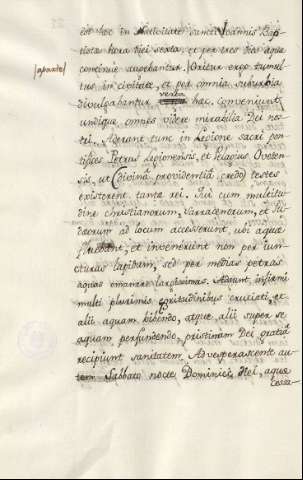 est hoc in Nativitate Sancti Joannis Bap-
tistæ hora diei sexta, et per tres dies aqua
continue augebantur. Oritur ergo tumul-
|aparte| tus in civitate, et per omnia suburbia
verba
divulgabantur hæc. Conveniunt
undique omnes videre mirabilia Dei nos-
tri. Aderant tunc in Legione sacri pon-
tifices Petrus Legionensis, et Pelagius Oveten-
sis, ut (divina providentia credo) testes
existerent tantæ rei. Qui cum multitu-
dine christianorum, Sarracenorum, et Ju-
dæorum ad locum accesserunt, ubi aquæ
fluebant, et invenerunt non per junc-
turas lapidum, sed per medias petras
aquas emanare largissimas. Aderant infirmi
multi plurimis ægritudinibus cruciati, et
alii aquam bibendo, atque alii super se
aquam perfundendo, pristinam Dei gratia
recipiunt sanitatem. Advesperascente au-
tem Sabbato nocte Dominici diei, aquæ
cessa-